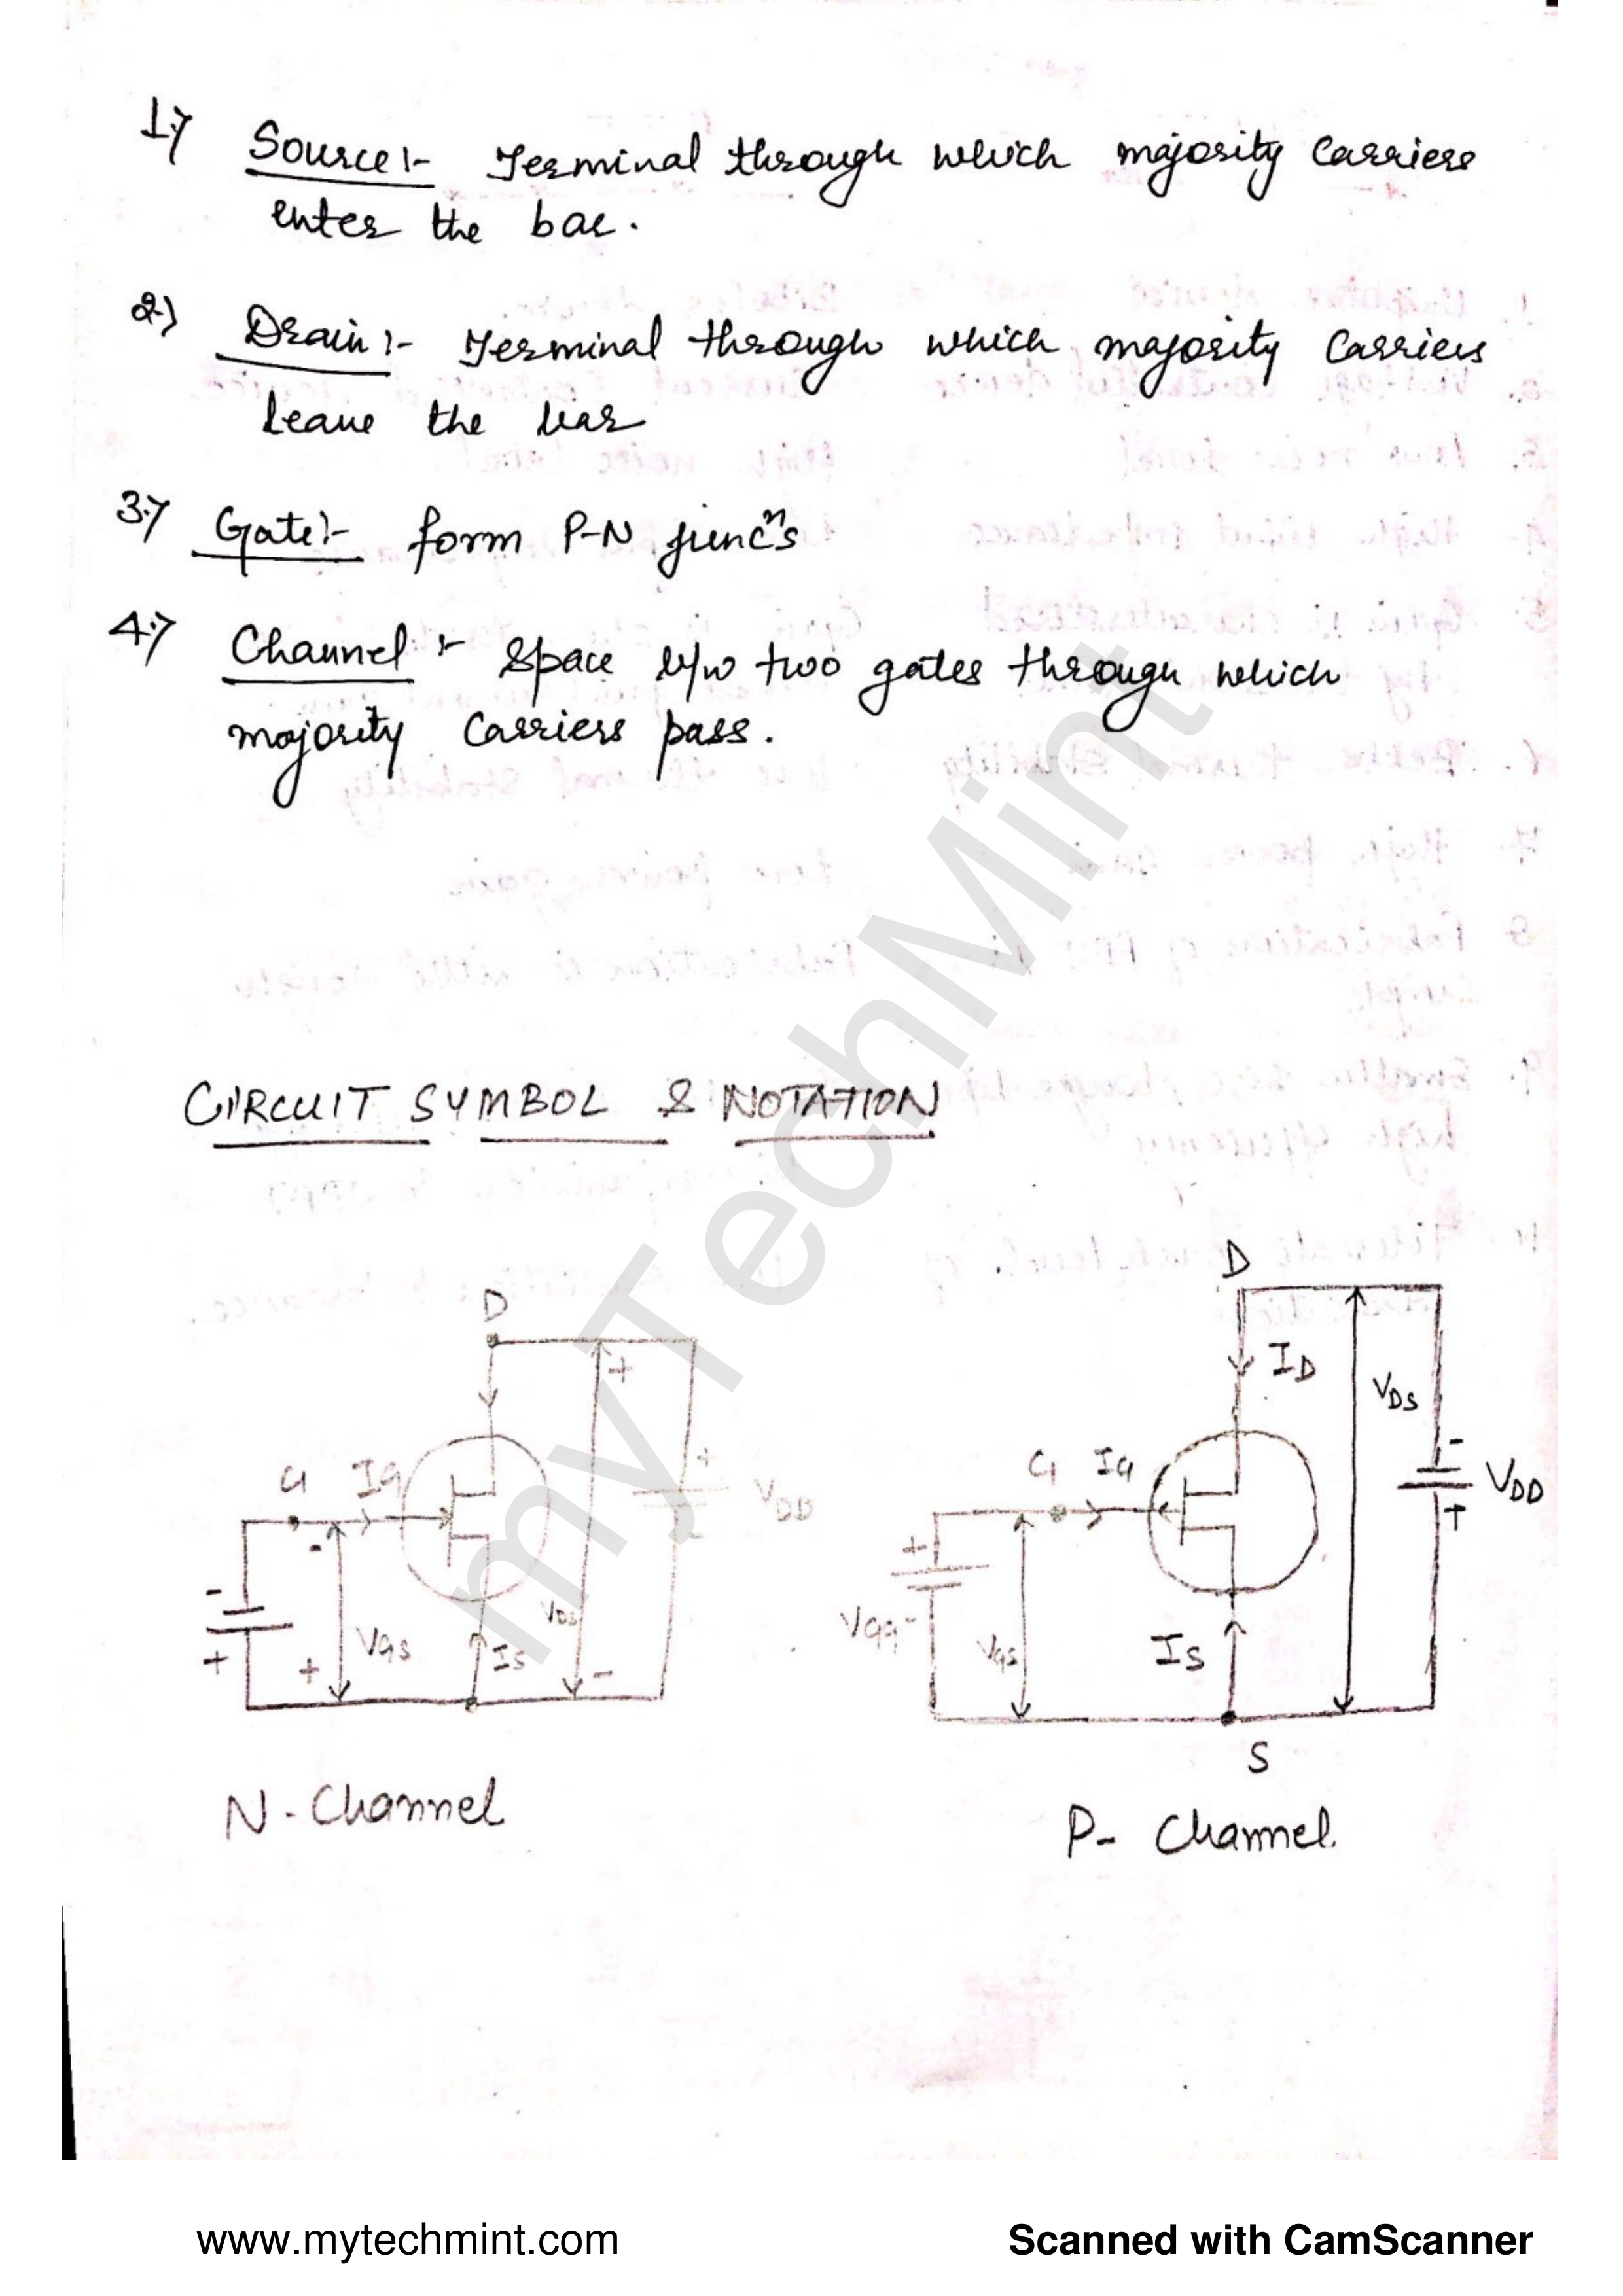 1.) Source :- Terminal through which majority carriers
enter the bar.
2.) Drain :- Terminal through which majority carriers
leave the bar
3.) Gate :- form P-N juncⁿs
4.) Channel :- Space b/w two gates through which
majority carriers pass.
CIRCUIT SYMBOL & NOTATION
D
D
+
I_D
V_DS
G I_G
+
V_DD
G I_G
-
V_DD
+
-
-
+
V_GS
+
+
V_GS
I_S
V_DS
-
V_GG -
V_GS
I_S
S
N-Channel
P- Channel.
myTechMint
www.mytechmint.com
Scanned with CamScanner